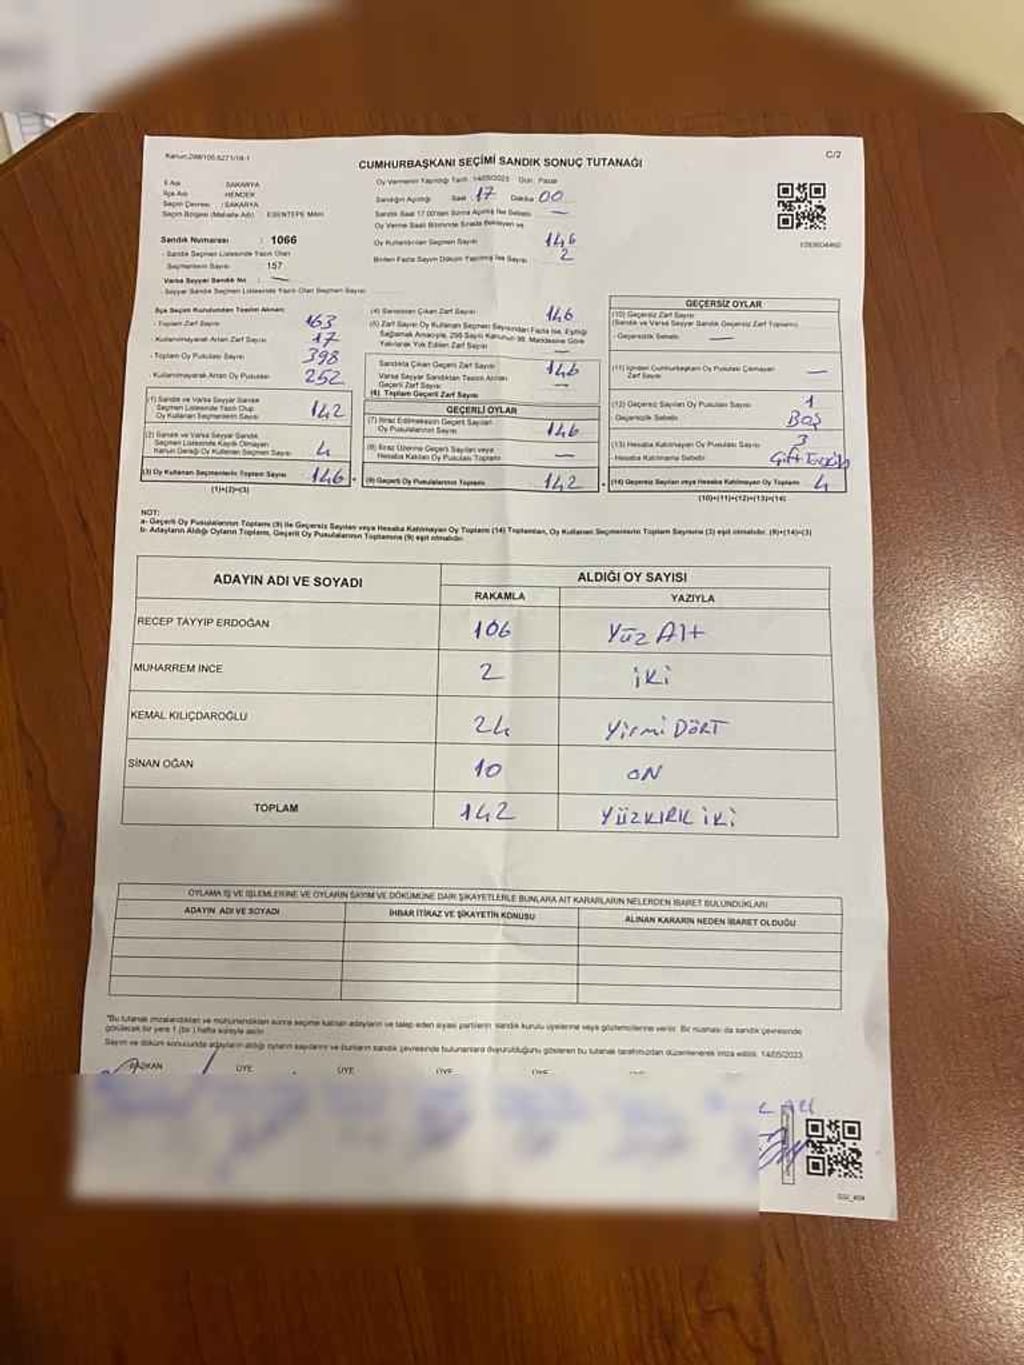 Kanun:298/105,6271/18-1
C/2
CUMHURBAŞKANI SEÇİMİ SANDIK SONUÇ TUTANAĞI
İl Adı : SAKARYA
İlçe Adı : HENDEK
Seçim Çevresi : SAKARYA
Seçim Bölgesi (Mahalle Adı) ESENTEPE MAH.
Sandık Numarası : 1066
- Sandık Seçmen Listesinde Yazılı Olan
Seçmenlerin Sayısı 157
Varsa Seyyar Sandık No : —
- Seyyar Sandık Seçmen Listesinde Yazılı Olan Seçmen Sayısı
Oy Vermenin Yapıldığı Tarih : 14/05/2023 Gün : Pazar
Sandığın Açıldığı Saat : 17 Dakika 00
Sandık Saat 17.00'den Sonra Açılmış İse Sebebi —
Oy Verme Saati Bitiminde Sırada Bekleyen ve
Oy Kullandırılan Seçmen Sayısı 146
Birden Fazla Sayım Döküm Yapılmış İse Sayısı 2
İlçe Seçim Kurulundan Teslim Alınan:
- Toplam Zarf Sayısı 163
- Kullanılmayarak Artan Zarf Sayısı 17
- Toplam Oy Pusulası Sayısı 398
- Kullanılmayarak Artan Oy Pusulası 252
(1) Sandık ve Varsa Seyyar Sandık
Seçmen Listesinde Yazılı Olup
Oy Kullanan Seçmenlerin Sayısı 142
(2) Sandık ve Varsa Seyyar Sandık
Seçmen Listesinde Kayıtlı Olmayan
Kanun Gereği Oy Kullanan Seçmen Sayısı 4
(3) Oy Kullanan Seçmenlerin Toplam Sayısı 146
(1)+(2)=(3)
(4) Sandıktan Çıkan Zarf Sayısı 146
(5) Zarf Sayısı Oy Kullanan Seçmen Sayısından Fazla İse, Eşitliği
Sağlamak Amacıyla, 298 Sayılı Kanunun 98. Maddesine Göre
Yakılarak Yok Edilen Zarf Sayısı —
Sandıkta Çıkan Geçerli Zarf Sayısı 146
Varsa Seyyar Sandıktan Teslim Alınan
Geçerli Zarf Sayısı —
(6) Toplam Geçerli Zarf Sayısı
GEÇERLİ OYLAR
(7) İtiraz Edilmeksizin Geçerli Sayılan
Oy Pusulalarının Sayısı 146
(8) İtiraz Üzerine Geçerli Sayılan veya
Hesaba Katılan Oy Pusulası Toplamı —
(9) Geçerli Oy Pusulalarının Toplamı 142
GEÇERSİZ OYLAR
(10) Geçersiz Zarf Sayısı
(Sandık ve Varsa Seyyar Sandık Geçersiz Zarf Toplamı)
- Geçersizlik Sebebi —
(11) İçinden Cumhurbaşkanı Oy Pusulası Çıkmayan
Zarf Sayısı —
(12) Geçersiz Sayılan Oy Pusulası Sayısı 1
- Geçersizlik Sebebi BOŞ
(13) Hesaba Katılmayan Oy Pusulası Sayısı 3
- Hesaba Katılmama Sebebi Çift
(14) Geçersiz Sayılan veya Hesaba Katılmayan Oy Toplamı 4
(10)+(11)+(12)+(13)=(14)
NOT:
a- Geçerli Oy Pusulalarının Toplamı (9) ile Geçersiz Sayılan veya Hesaba Katılmayan Oy Toplamı (14) Toplamları, Oy Kullanan Seçmenlerin Toplam Sayısına (3) eşit olmalıdır. (9)+(14)=(3)
b- Adayların Aldığı Oyların Toplamı, Geçerli Oy Pusulalarının Toplamına (9) eşit olmalıdır.
ADAYIN ADI VE SOYADI ALDIĞI OY SAYISI
RAKAMLA YAZIYLA
RECEP TAYYİP ERDOĞAN 106 Yüz Altı
MUHARREM İNCE 2 iki
KEMAL KILIÇDAROĞLU 24 Yirmi DÖRT
SİNAN OĞAN 10 ON
TOPLAM 142 YÜZKIRK iKi
OYLAMA İŞ VE İŞLEMLERİNE VE OYLARIN SAYIM VE DÖKÜMÜNE DAİR ŞİKAYETLERLE BUNLARA AİT KARARLARIN NELERDEN İBARET BULUNDUKLARI
ADAYIN ADI VE SOYADI İHBAR İTİRAZ VE ŞİKAYETİN KONUSU ALINAN KARARIN NEDEN İBARET OLDUĞU
*Bu tutanak imzalandıktan ve mühürlendikten sonra seçime katılan adayların ve talep eden siyasi partilerin sandık kurulu üyelerine veya gözlemcilerine verilir. Bir nüshası da sandık çevresinde
görülecek bir yere 1 (bir) hafta süreyle asılır.
Sayım ve döküm sonucunda adayların aldığı oyların sayılarını ve bunların sandık çevresinde bulunanlara duyurulduğunu gösteren bu tutanak tarafımızdan düzenlenerek imza edildi. 14/05/2023
BAŞKAN ÜYE ÜYE ÜYE ÜYE